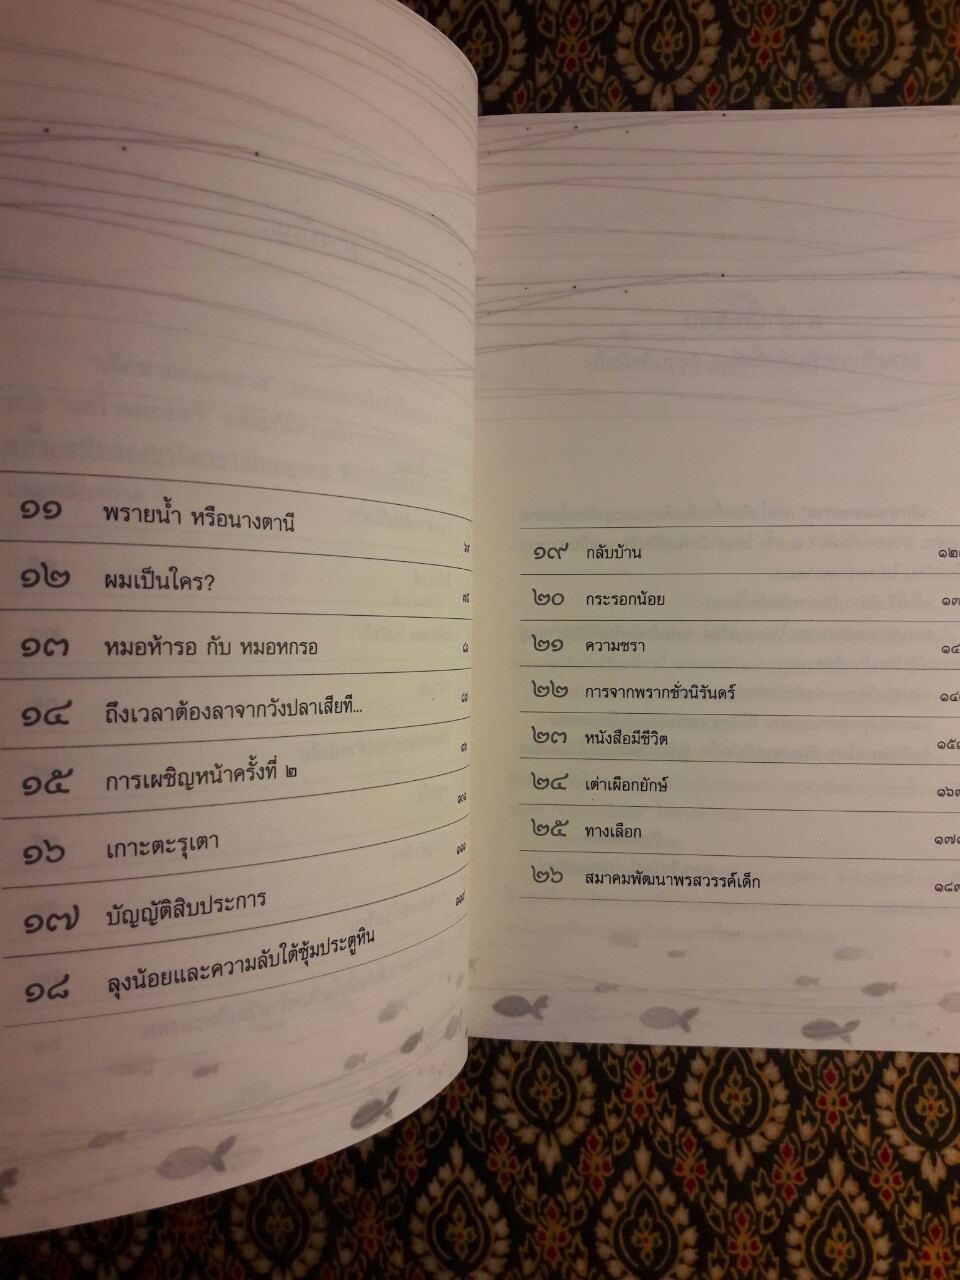 ๑๑ พรายน้ำ หรือนางตานี
๑๒ ผมเป็นใคร?
๑๓ หมอห้ารอ กับ หมอหกรอ
๑๔ ถึงเวลาต้องลาจากวังปลาเสียที...
๑๕ การเผชิญหน้าครั้งที่ ๒
๑๖ เกาะตะรุเตา
๑๗ บัญญัติสิบประการ
๑๘ ลุงน้อยและความลับใต้ซุ้มประตูหิน
๑๙ กลับบ้าน
๒๐ กระรอกน้อย
๒๑ ความชรา
๒๒ การจากพรากชั่วนิรันดร์
๒๓ หนังสือมีชีวิต
๒๔ เต่าเผือกยักษ์
๒๕ ทางเลือก
๒๖ สมาคมพัฒนาพรสวรรค์เด็ก